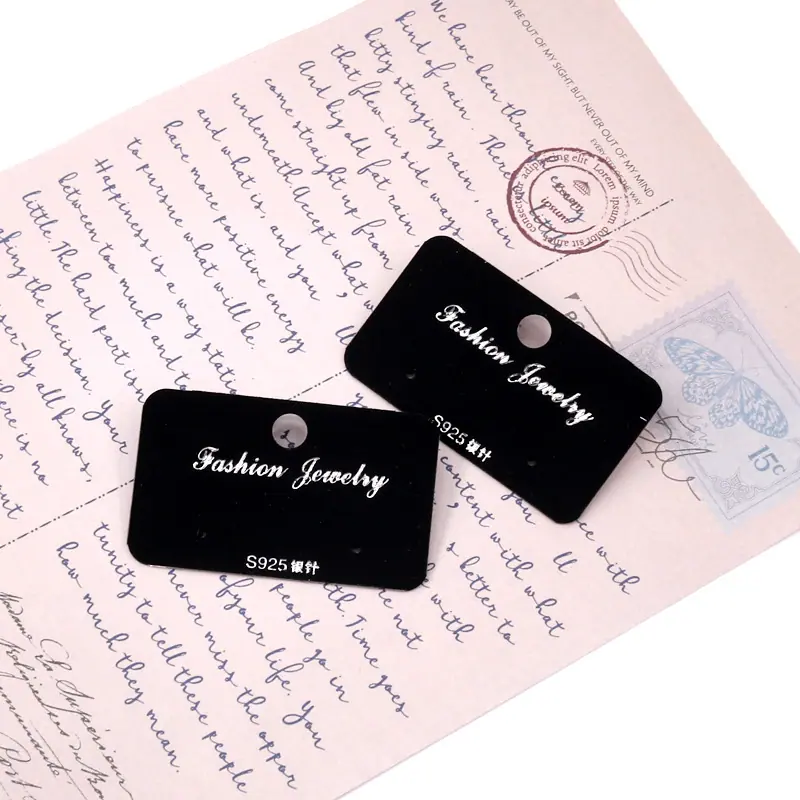 MAY BE OUT OF MY SIGHT, BUT NEVER OUT OF MY MIND
We have been throu
kind of rain. There
bitty stinging rain, rain
that flew in side ways
And big old fat rain
come straight up from
underneath. Accept what
and what is, and you
have more positive energy
to pursue what will be.
Happiness is a way station
between too much and too
little. The hard part isn
king the decision. Your
all knows
there is no
content with what
s a letter to
rith. Time goes
people go in
of your life. You
never miss the oppor
tunity to tell these people
how much they mean.
consectetur adipiscing elit Lorem ipsum dolor sit amet
ipsum
15c
Fashion Jewelry
S925银针
Fashion Jewelry
S925银针